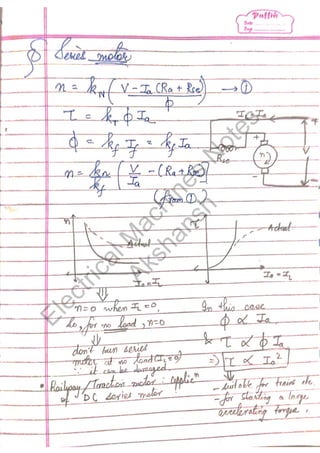 Pulfin
Date
Page
Series motor
n = k_N ( V - Ia (Ra + Rse) / φ ) → ①
τ = k_T φ Ia
φ = k_f I_f = k_f Ia
n = k_N / k_f [ V / Ia - (Ra + Rse) ]
(from ①)
Rse
+
n
-
+
-
n
Actual
Ia = I_L
τ
Actual
Ia = I_L
n=0 when I_L = 0.
So, for no load, n=0
don't run series
motor at no load (I_L=0)
∵ it can be damaged.
In this case
φ ∝ Ia
& τ ∝ φ Ia
⇒ τ ∝ Ia²
• Railway / Traction motor : applicⁿ
of DC series motor
- suitable for trains etc.
- for starting a large
accelerating torque.
Electrical Machines Notes
Akshansh